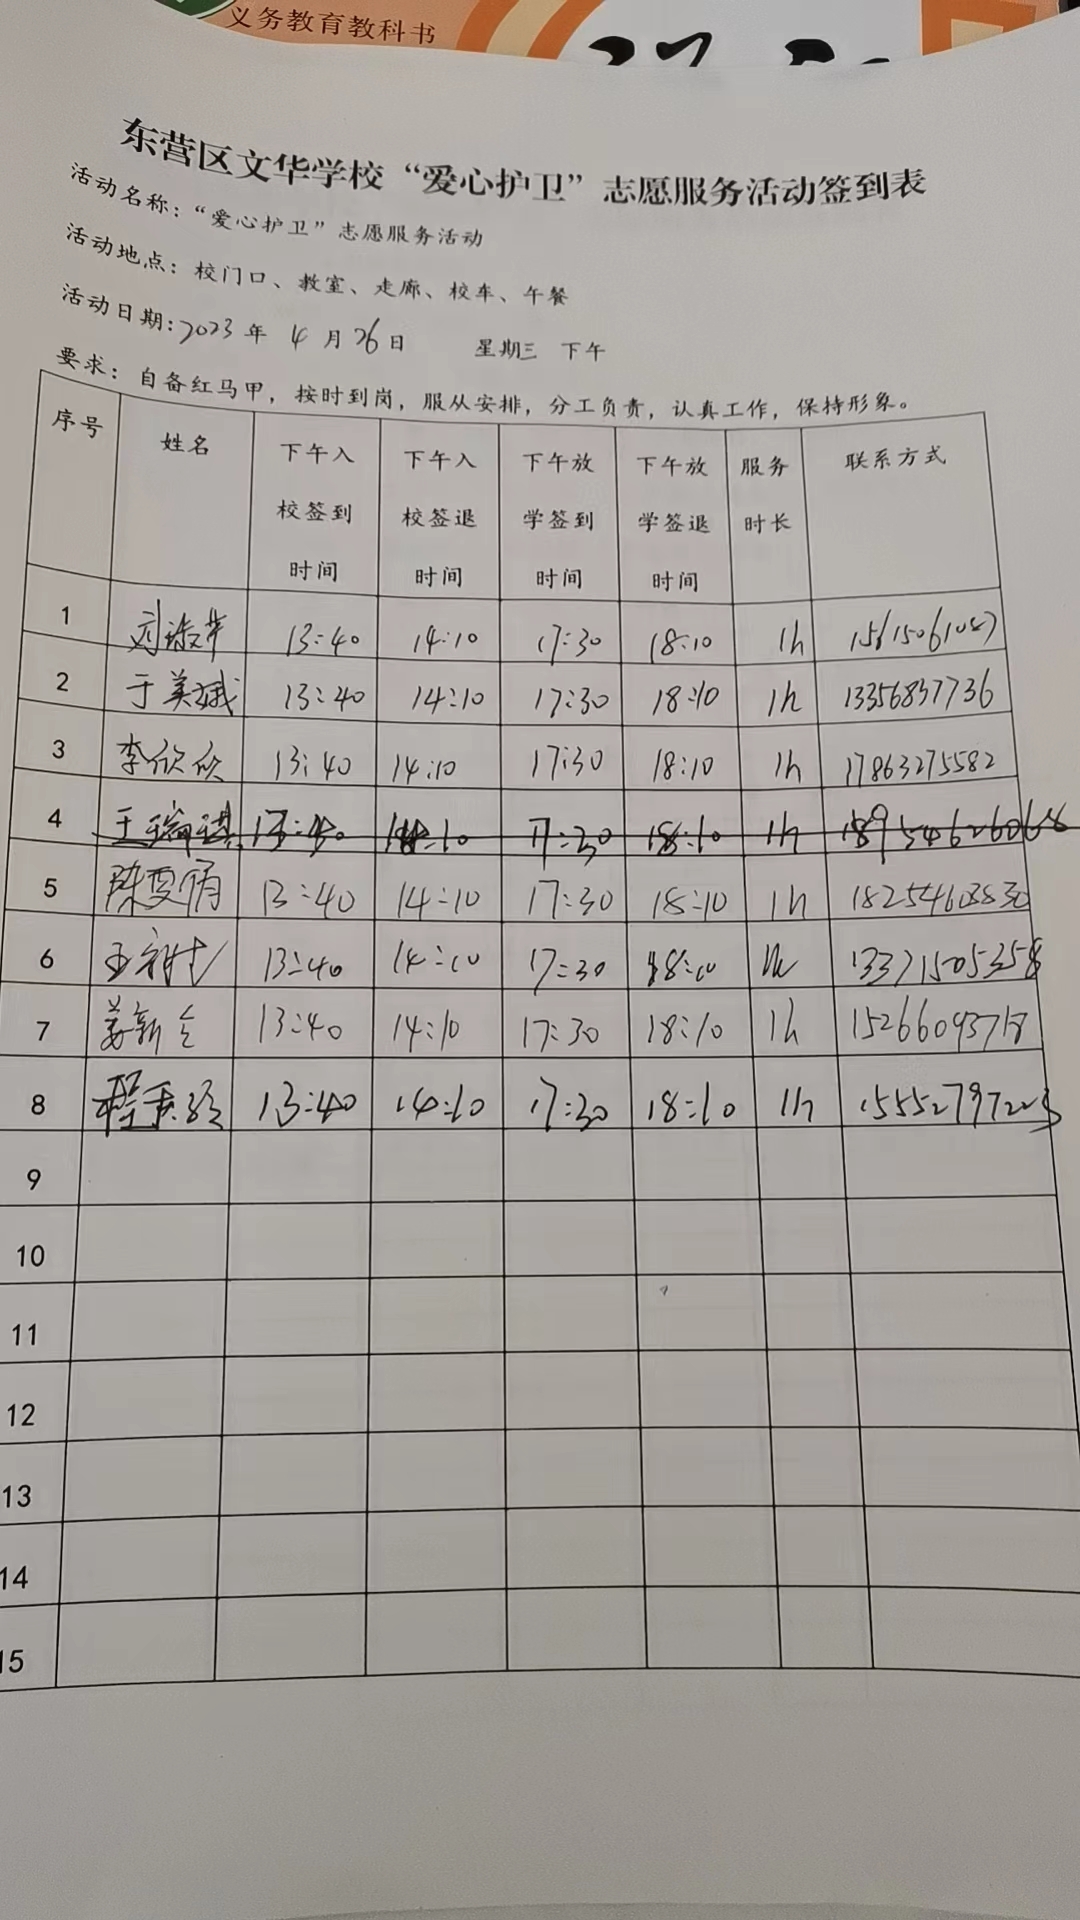 义务教育教科书
东营区文华学校“爱心护卫”志愿服务活动签到表
活动名称：“爱心护卫”志愿服务活动
活动地点：校门口、教室、走廊、校车、午餐
活动日期：2023年 4月26日 星期三 下午
要求：自备红马甲，按时到岗，服从安排，分工负责，认真工作，保持形象。
序号 姓名 下午入校签到时间 下午入校签退时间 下午放学签到时间 下午放学签退时间 服务时长 联系方式
1 13:40 14:10 17:30 18:10 1h 15615061087
2 于美娥 13:40 14:10 17:30 18:10 1h 13356837736
3 李欣欣 13:40 14:10 17:30 18:10 1h 17863275582
4 王瑞琪 13:40 14:10 17:30 18:10 1h 18954626068
5 13:40 14:10 17:30 18:10 1h 18254603830
6 13:40 14:10 17:30 18:10 1h 13371505358
7 姜新 13:40 14:10 17:30 18:10 1h 15266093718
8 13:40 14:10 17:30 18:10 1h
9
10
11
12
13
14
15